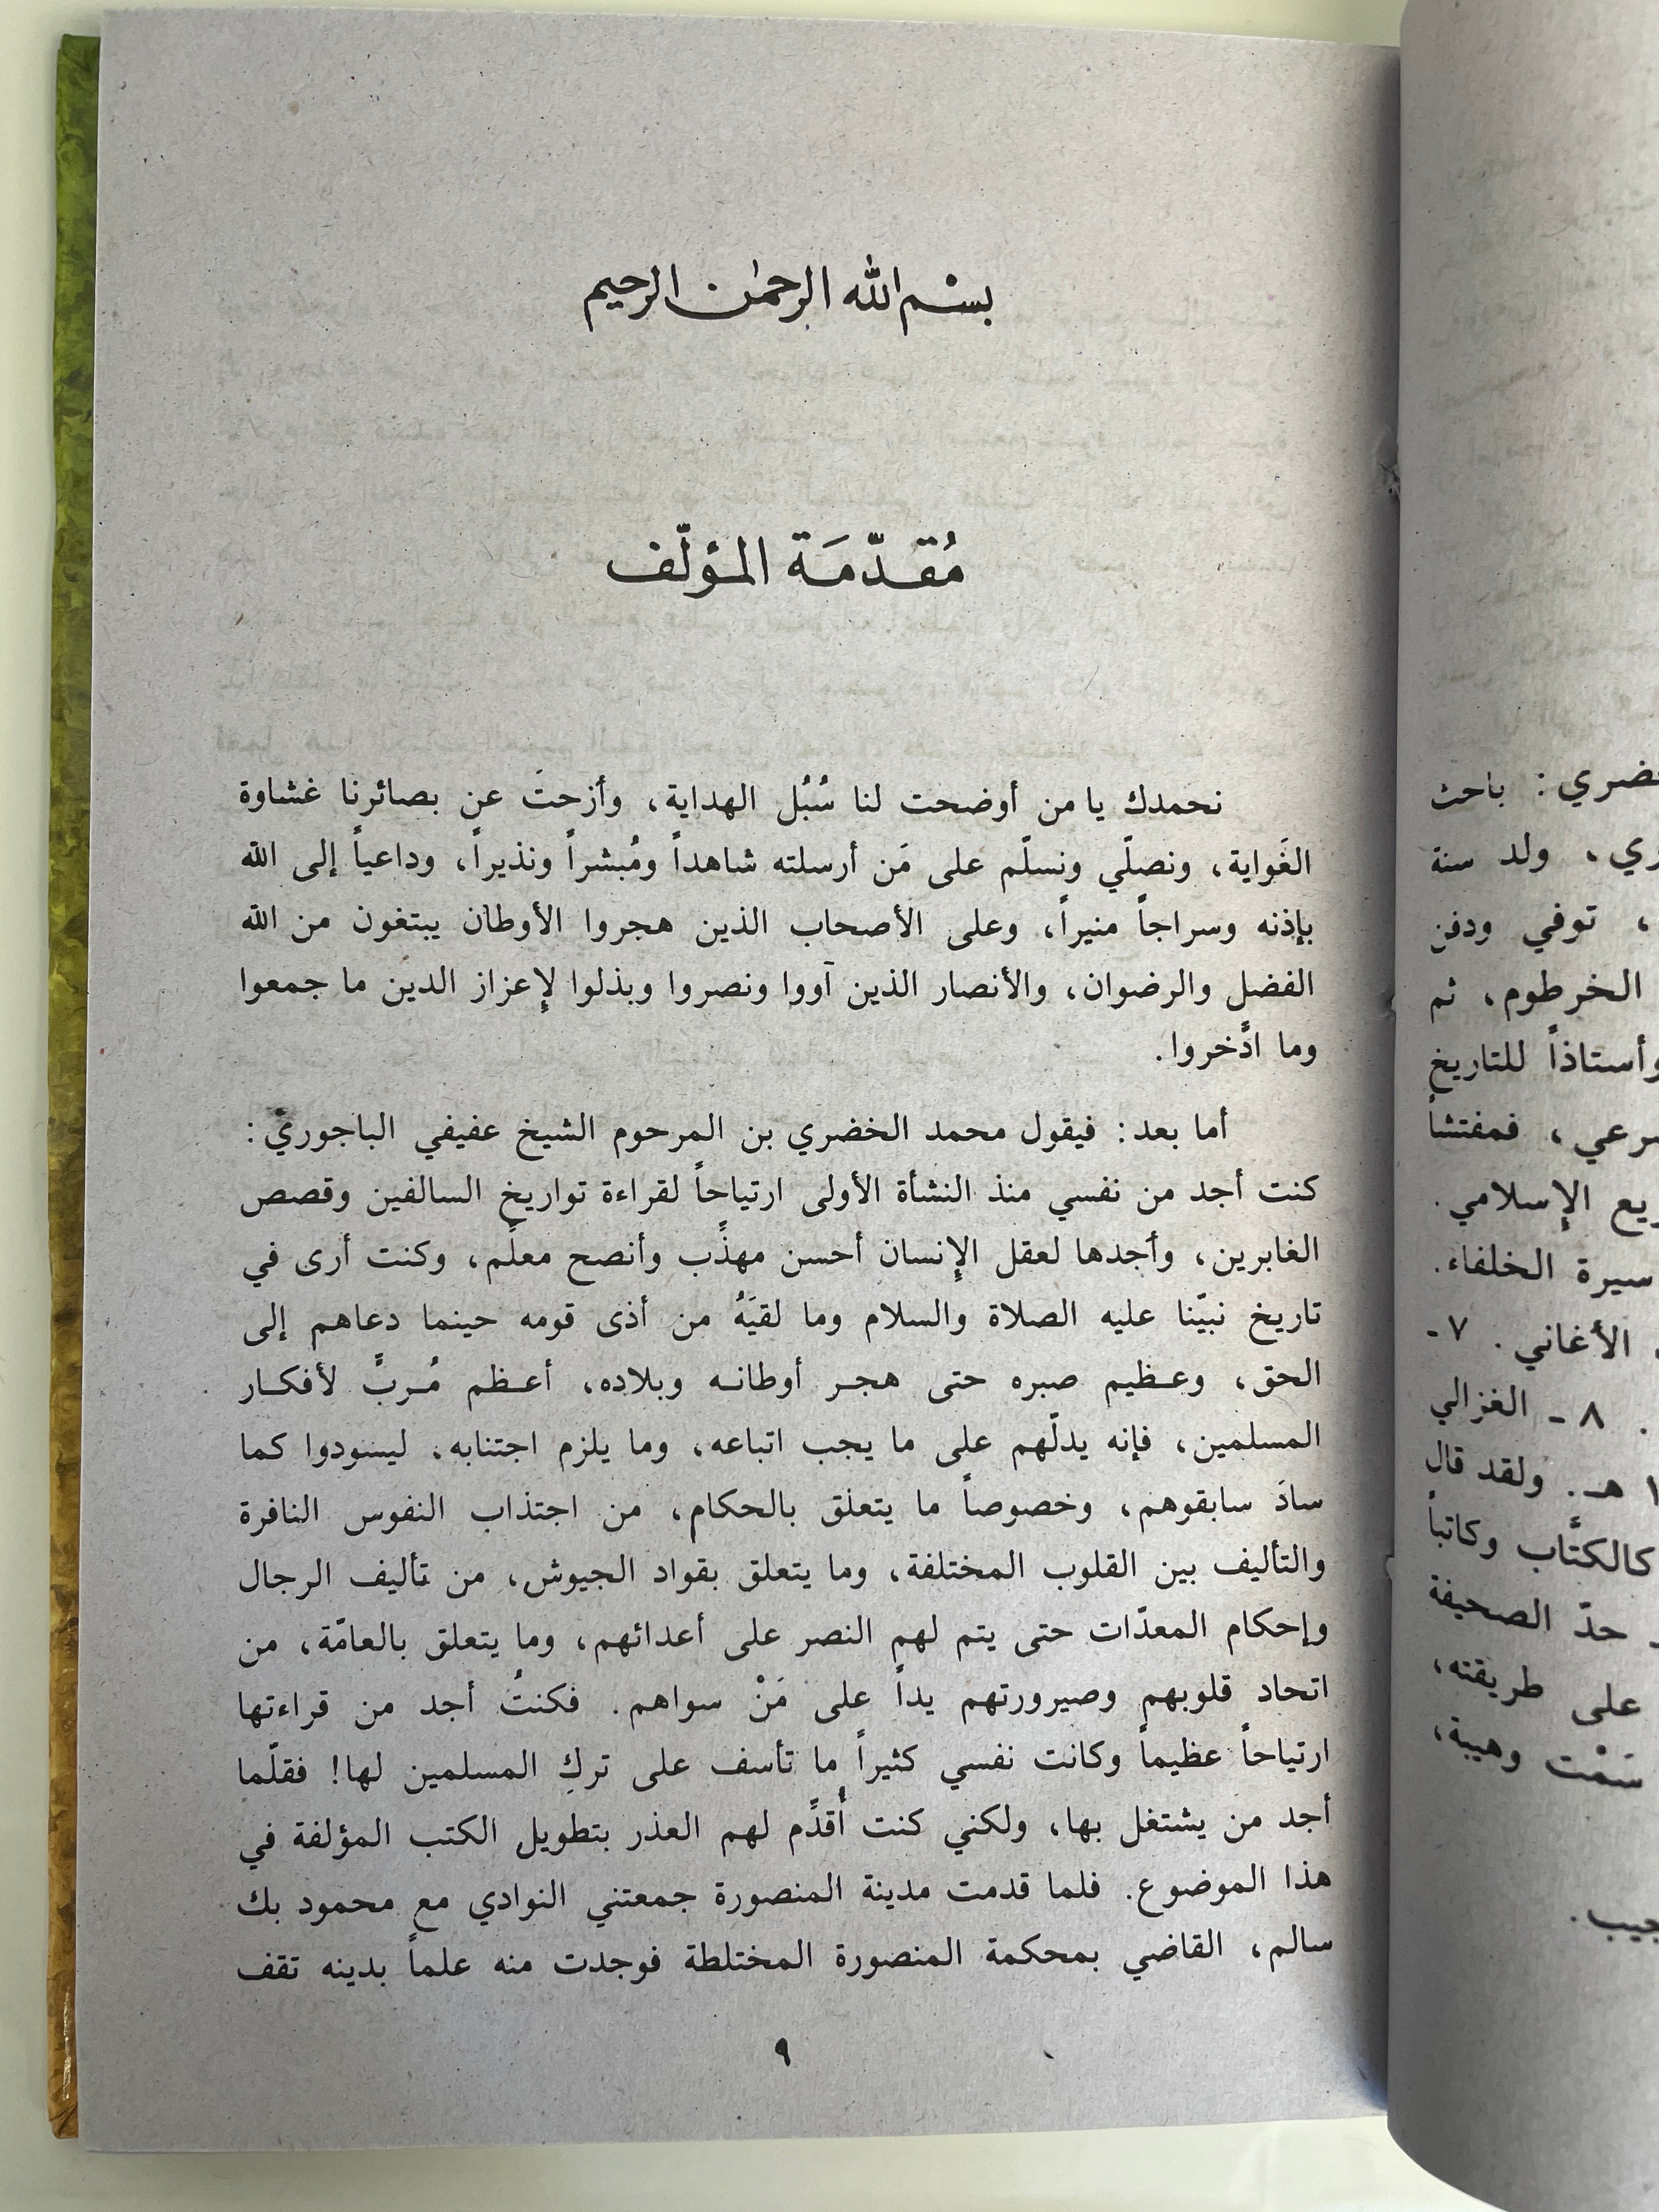 بسم الله الرحمن الرحيم
مُقَدّمَة المؤلّف
نحمدك يا من أوضحت لنا سُبُل الهداية، وأزحتَ عن بصائرنا غشاوة
الغَواية، ونصلّي ونسلّم على مَن أرسلته شاهداً ومُبشراً ونذيراً، وداعياً إلى الله
بإذنه وسراجاً منيراً، وعلى الأصحاب الذين هجروا الأوطان يبتغون من الله
الفضل والرضوان، والأنصار الذين آووا ونصروا وبذلوا لإعزاز الدين ما جمعوا
وما ادَّخروا.
أما بعد: فيقول محمد الخضري بن المرحوم الشيخ عفيفي الباجوري:
كنت أجد من نفسي منذ النشأة الأولى ارتياحاً لقراءة تواريخ السالفين وقصص
الغابرين، وأجدها لعقل الإنسان أحسن مهذِّب وأنصح معلِّم، وكنت أرى في
تاريخ نبيّنا عليه الصلاة والسلام وما لقيَهُ من أذى قومه حينما دعاهم إلى
الحق، وعظيم صبره حتى هجر أوطانه وبلاده، أعظم مُربٍّ لأفكار
المسلمين، فإنه يدلّهم على ما يجب اتباعه، وما يلزم اجتنابه، ليسودوا كما
سادَ سابقوهم، وخصوصاً ما يتعلق بالحكام، من اجتذاب النفوس النافرة
والتأليف بين القلوب المختلفة، وما يتعلق بقواد الجيوش، من تأليف الرجال
وإحكام المعدّات حتى يتم لهم النصر على أعدائهم، وما يتعلق بالعامّة، من
اتحاد قلوبهم وصيرورتهم يداً على مَنْ سواهم. فكنتُ أجد من قراءتها
ارتياحاً عظيماً وكانت نفسي كثيراً ما تأسف على تركِ المسلمين لها! فقلّما
أجد من يشتغل بها، ولكني كنت أُقدِّم لهم العذر بتطويل الكتب المؤلفة في
هذا الموضوع. فلما قدمت مدينة المنصورة جمعتني النوادي مع محمود بك
سالم، القاضي بمحكمة المنصورة المختلطة فوجدت منه علماً بدينه تقف
٩
باحث
ولد سنة
، توفي ودفن
الخرطوم، ثم
وأستاذاً للتاريخ
، فمفتشاً
الإسلامي.
سيرة الخلفاء.
الأغاني. ٧-
. ٨ - الغزالي
هـ. ولقد قال
كالكتَّاب وكاتباً
حدّ الصحيفة
على طريقته،
سَمْت وهيبة،